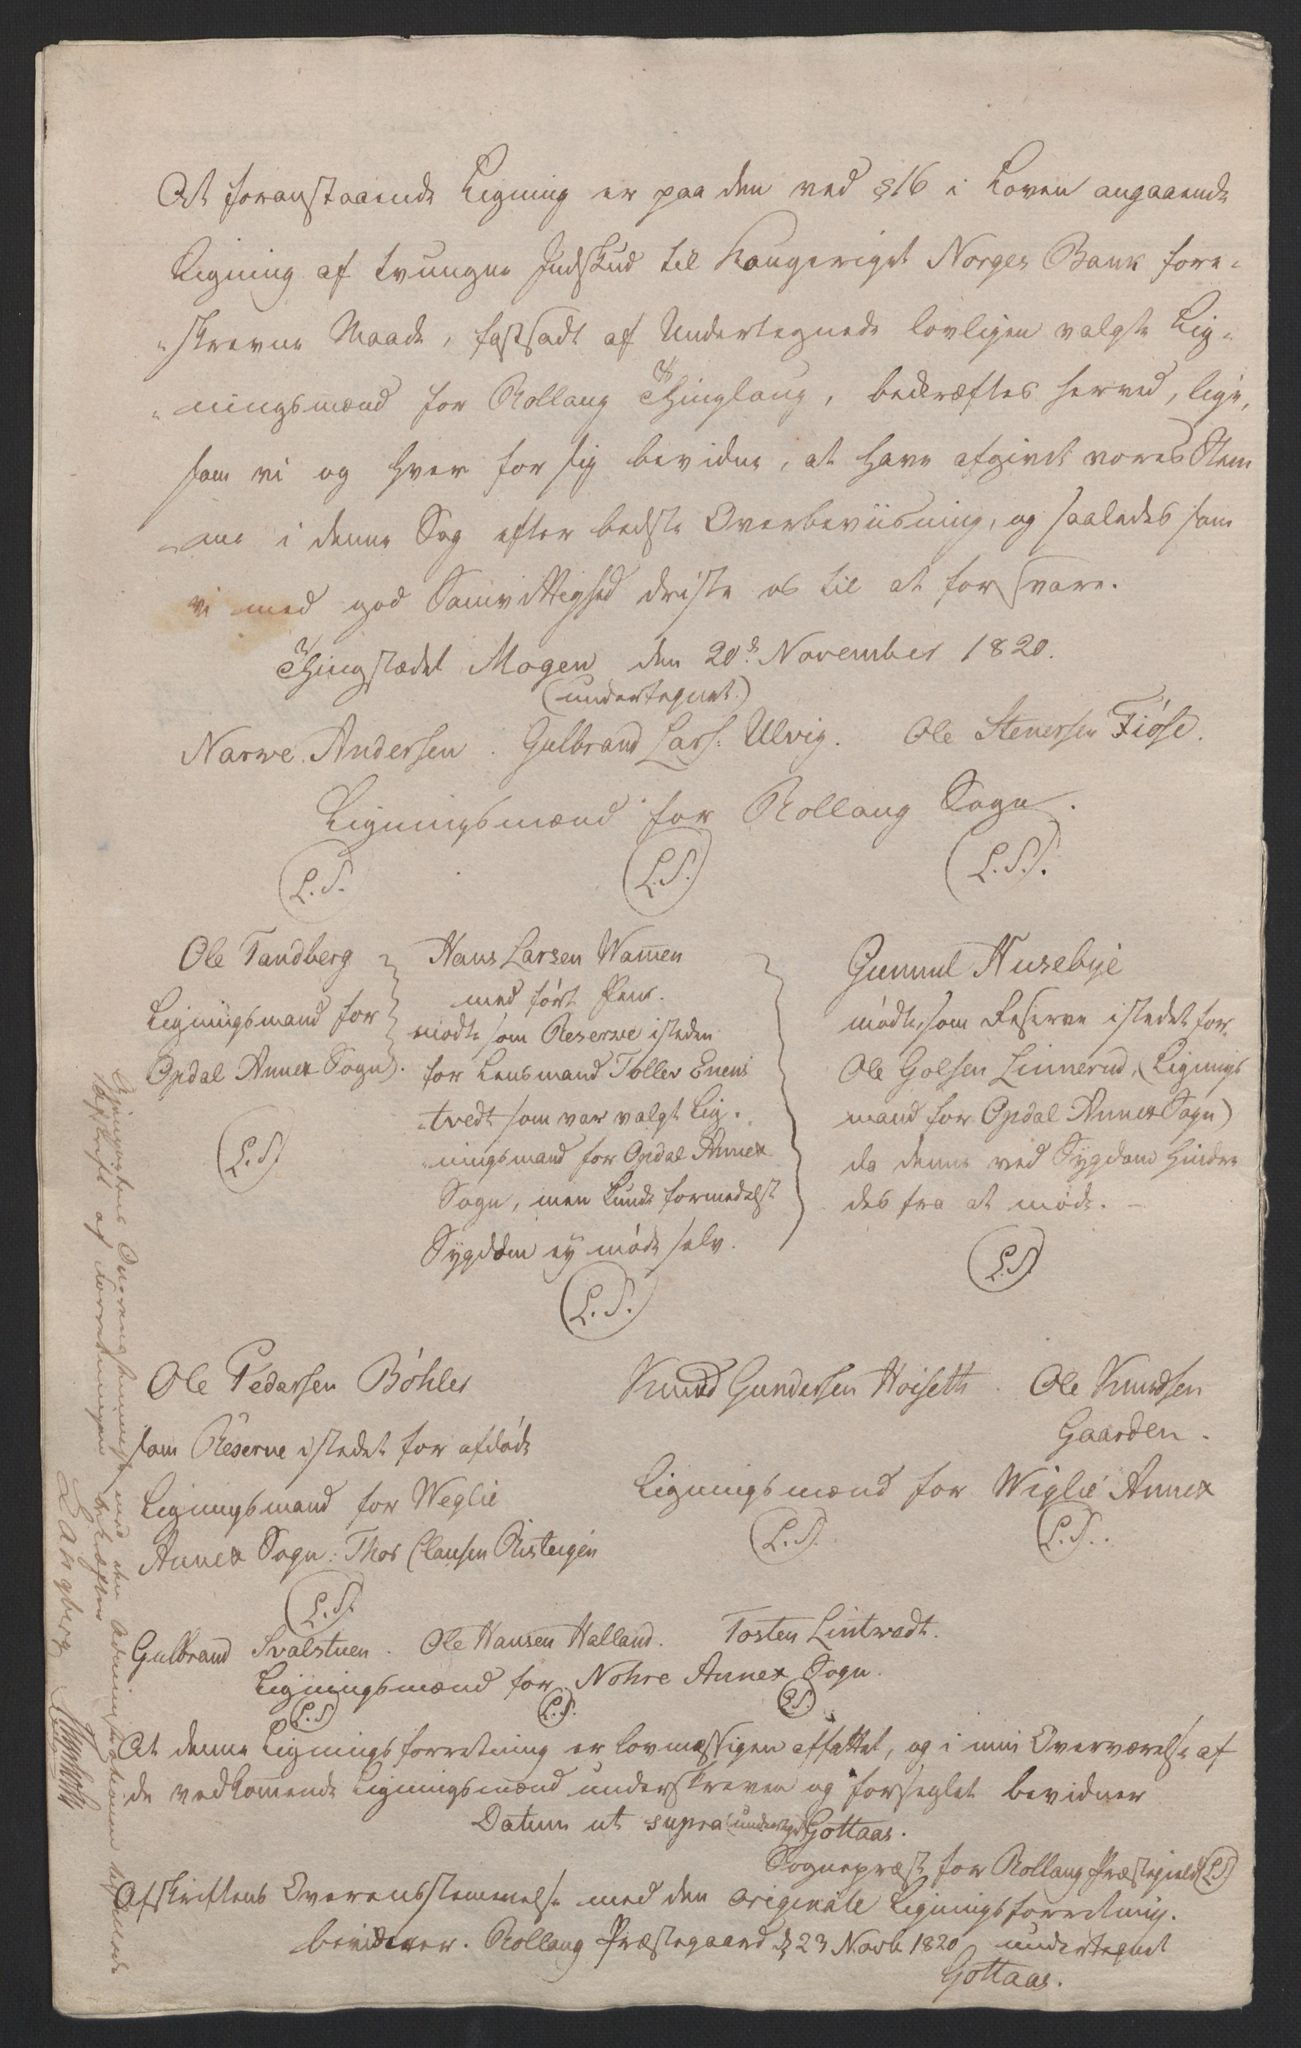 At foranstaaende Ligning er paa den ved § 16 i Loven angaaende
Ligning af tvungne Indskud til Kongeriget Norges Bank fore-
skrevne Maade, fastsadt af Undertegnede lovligen valgte Lig-
ningsmænd for Rollaug Thinglaug, bekræftes herved, lige,
som vi og hver for sig bevidne, at have afgivet vores Stem
me i denne Sag efter bedste Overbeviisning, og saaledes som
vi med god Samvittighed driste os til at forsvare.
Thingstædet Mogen den 20d November 1820.
(undertegnet)
Narve Andersen. Gulbrand Lars: Ulvig. Ole Stenersen Fiøse.
Ligningsmænd for Rollaug Sogn.
(L.S.) (L.S.) (L.S.).
Ole Tandberg
Ligningsmand for
Opdal Annex Sogn).
(L.S.)
Hans Larsen Wamen
med ført Pen.
mødte som Reserve isteden
for Lensmand Tollev Enens
tvedt som var valgt Lig-
ningsmand for Opdal Annex
Sogn, men kunde formedelst
Sygdom ey møde selv.
(L.S.)
Gunnul Husebye
mødte, som Reserve istedet for
Ole Golsen Linnerud, (Lignings
mand for Opdal Annex Sogn)
da denne ved Sygdom hindre
des fra at møde.
(L.S)
Ole Pedersen Bøhler
som Reserve istedet for afdøde
Ligningsmand for Weglie
Annex Sogn: Thor Clausen Risteigen
(L.S.)
Knud Gundersen Hoiseth. Ole Knudsen
Gaarden.
Ligningsmænd for Wiglie Annex
(L.S.) (L.S.).
Gulbrand Svalstuen. Ole Hansen Halland. Tosten Lintvedt.
Ligningsmænd for Nohre Annex Sogn.
(L.S) (L.S.) (L.S.)
At denne Ligningsforretning er lovmæssigen affattet, og i min Overværelse af
de vedkomende Ligningsmænd underskreven og forseglet bevidner
Datum ut supra (undertegnet) Gottaas.
Sognepræst for Rollaug Præstegield (LS)
Afskriftens Overensstemmelse med den originale Ligningsforretning.
bevidner. Rollaug Præstegaard d 23 Novb 1820 undertegnet
Gottaas.
Gjenpartens Overensstemmelse med den Administrationen tilstillede
Afskrift af Forretningen bekræfter
Langberg